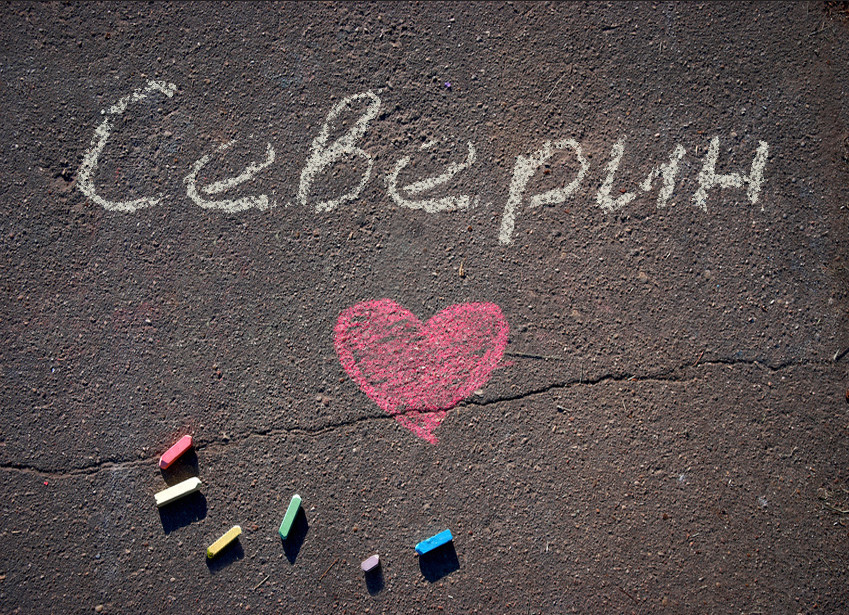 Северин